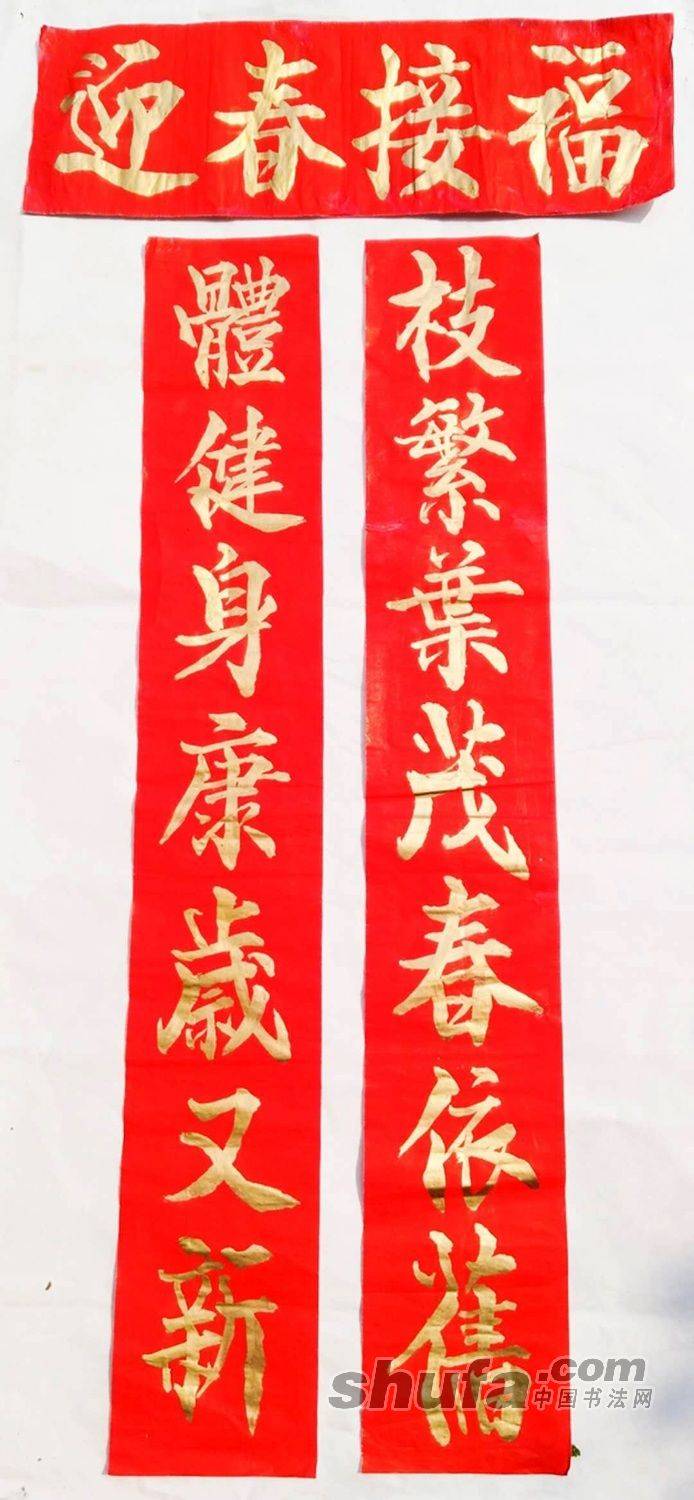 迎春接福
體健身康歲又新
枝繁葉茂春依舊
shufa.com
中国书法网